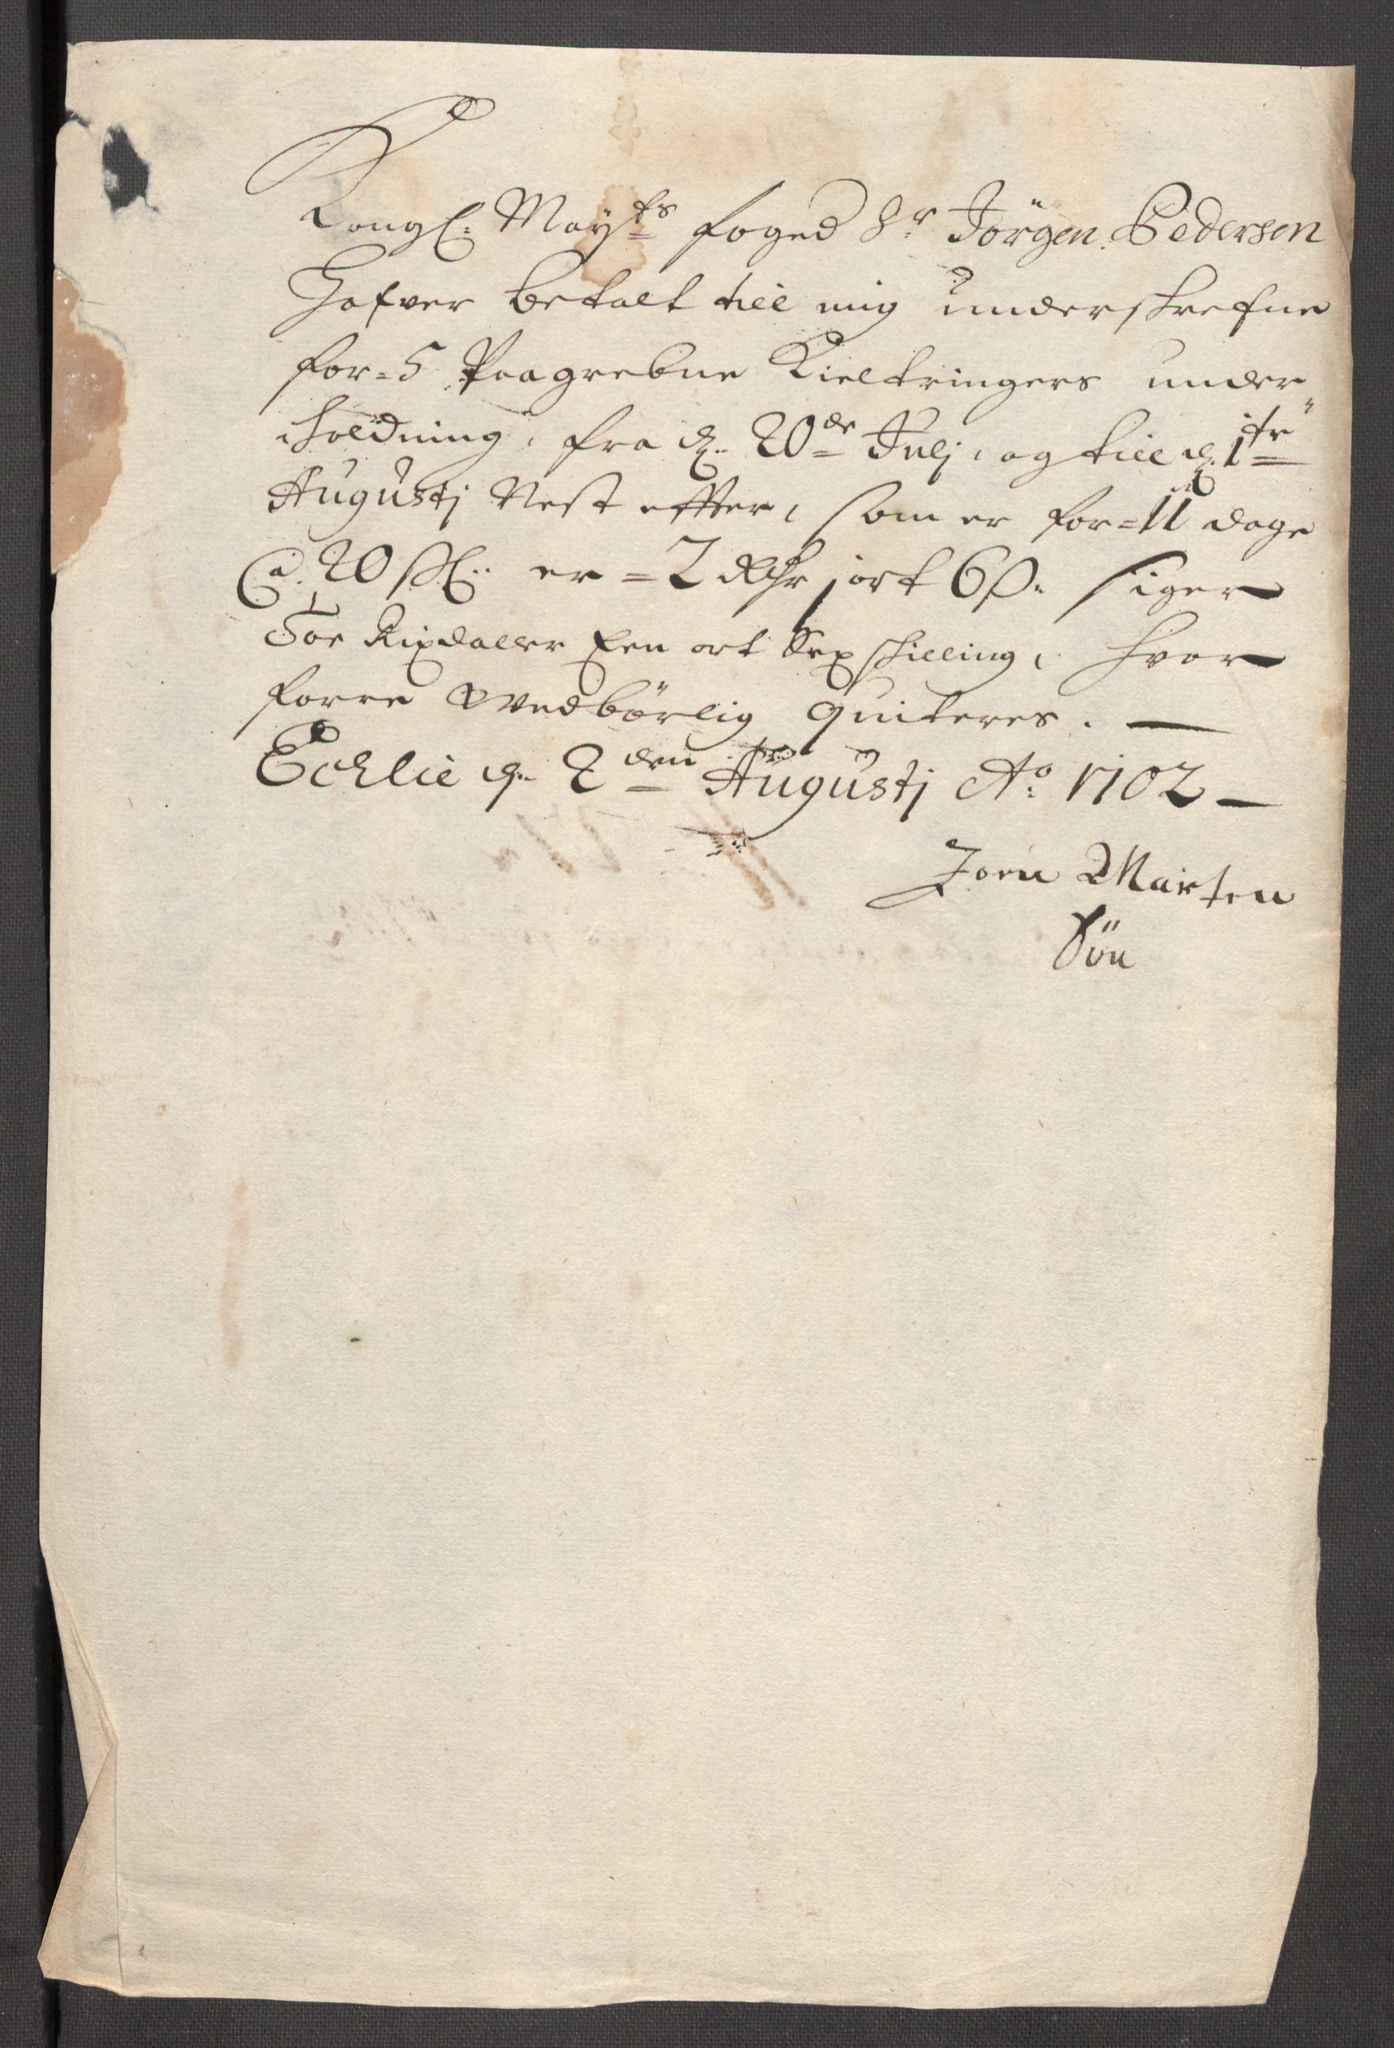 Kongl: May:ts foged Sr Jörgen Pedersen
Hafver betalt till mig underskrefne
for = 5 Paagrebne Kieltringers under„
holdning, fra d. 20de Julj, og till d. 1te
Augustj Nest effter, som er for = 11 dage
a 20 sk: er = 2 Rdr 1 ort 6 s. siger
Toe Rixdaller Een ort Sex skilling, hvor
forre Wedbörlig quiteres. —
Echlie d. 2den Augustj Ao 1702 —
Joen Marten
Sön